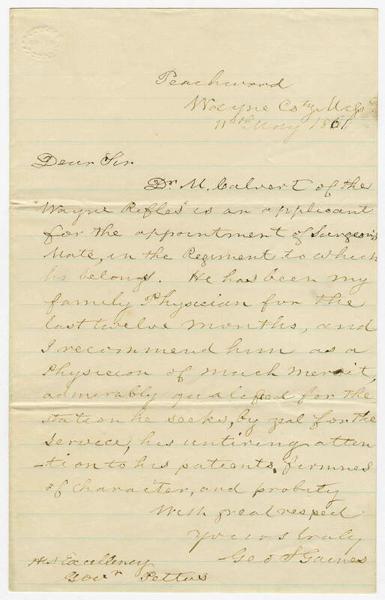 Peachwood
Wayne Coty Missi
11th May 1861
Dear Sir
Dr M. Calvert of the
"Wayne Rifles" is an applicant
for the appointment of Surgeon's
Mate, in the Regiment to which
he belongs. He has been my
family Physician for the
last twelve months, and
I recommend him as a
Physician of much merit,
admirably qualified for the
station he seeks, by zeal for the
service, his untiring atten
-tion to his patients, firmness
of character, and probity
With great respect
Yours truly
Geo S Gaines
His Excellency
Govr Pettus